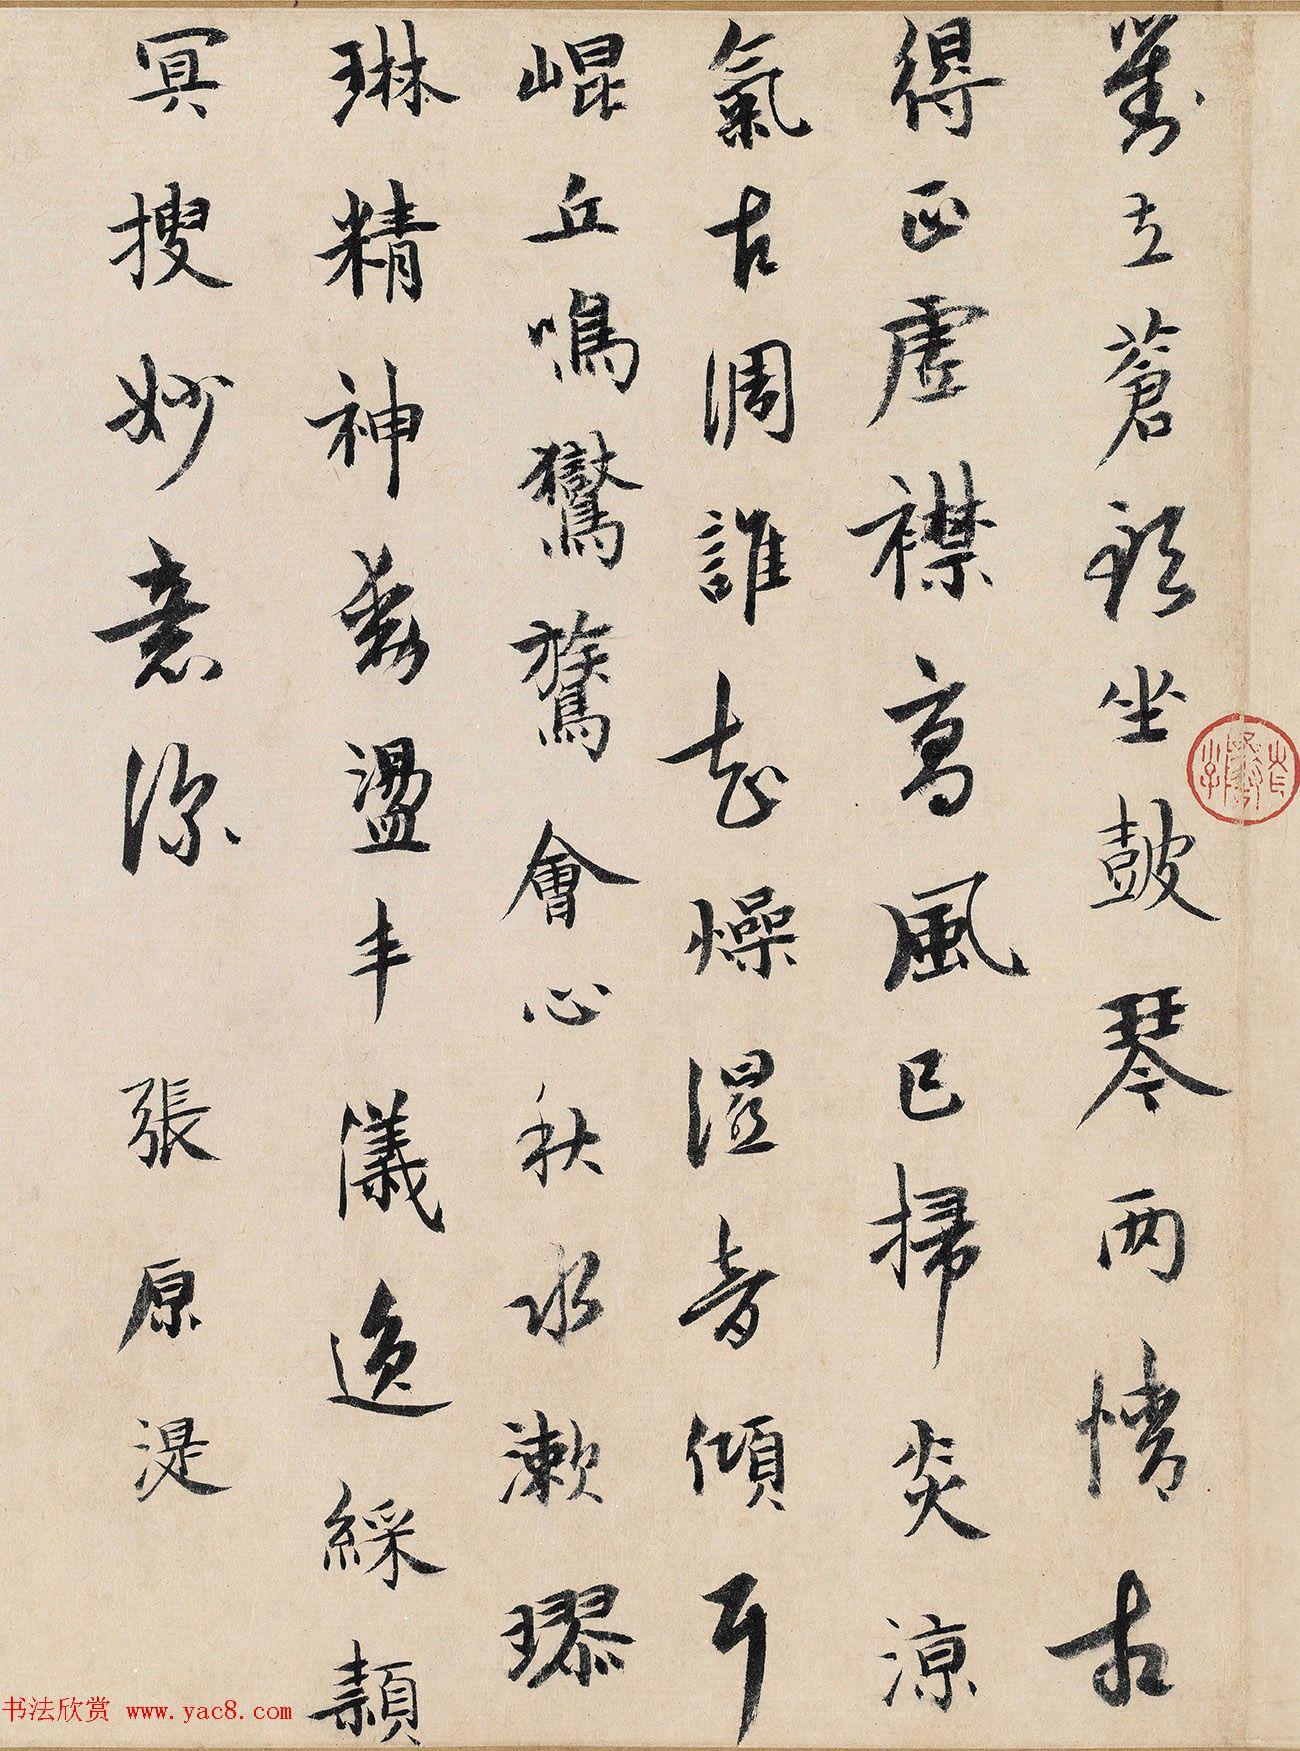 對立蒼頭坐鼓琴两情相
得正虛襟高風已掃炎涼
氣古調誰知燥濕音傾耳
崐丘鳴鸑鷟會心秋水漱璆
琳精神發盪丰儀逸綵穎
冥搜妙意深 張原湜
书法欣赏 www.yac8.com